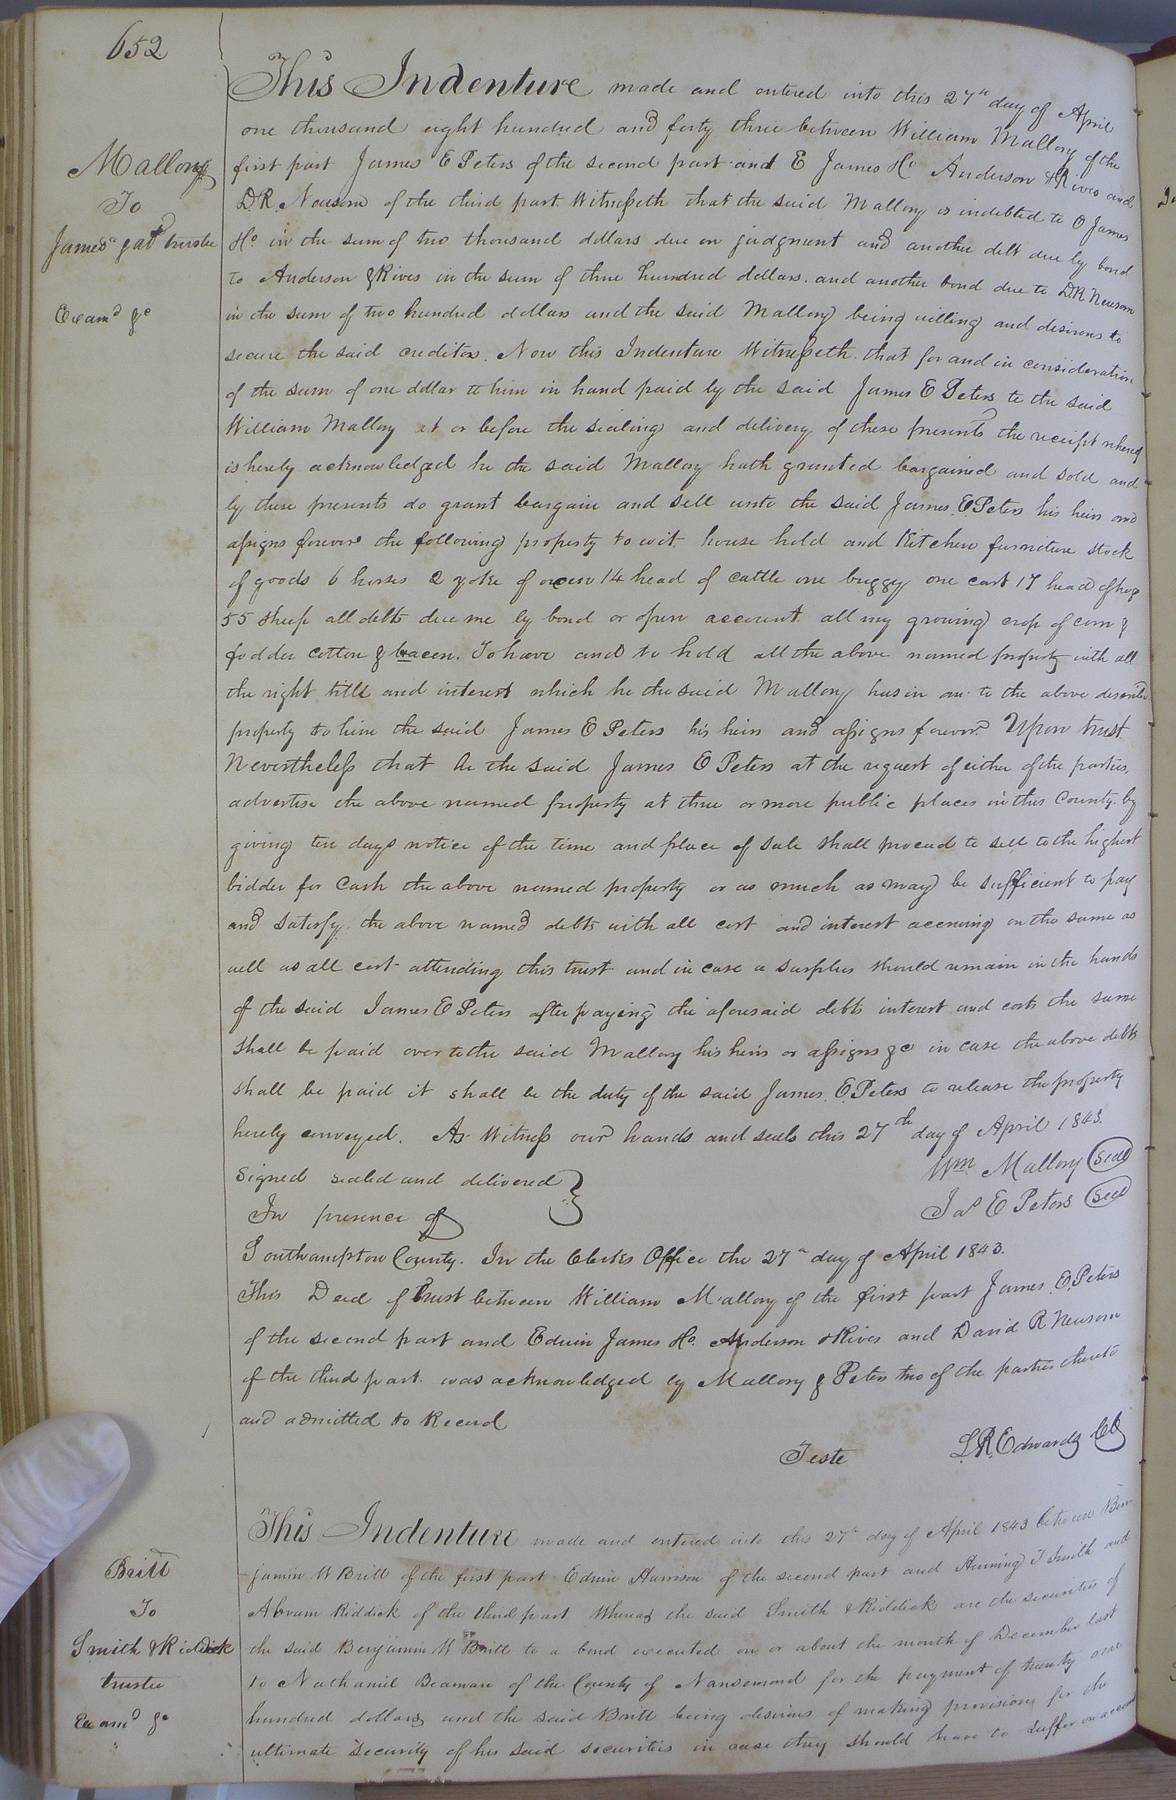 652
This Indenture made and entered into this 27th day of April
one thousand eight hundred and forty three between William Mallory of the
first part James E Peters of the second part and E James & Co Anderson & Rives and
D.R. Newsom of the third part Witnesseth that the said Mallory is indebted to E James
& Co in the sum of two thousand dollars due on judgment and another debt due by bond
to Anderson & Rives in the sum of three hundred dollars. and another bond due to D.R. Newsom
in the sum of two hundred dollars and the said Mallory being willing and desirous to
secure the said creditors. Now this Indenture Witnesseth that for and in consideration
of the sum of one dollar to him in hand paid by the said James E Peters to the said
William Mallory at or before the sealing and delivery of these presents the receipt whereof
is hereby acknowledged he the said Mallory hath granted bargained and sold and
by these presents do grant bargain and sell unto the said James E Peters his heirs and
assigns forever the following property to wit. house hold and Kitchen furniture stock
of goods 6 horses 2 yoke of oxen 14 head of cattle one buggy one cart 17 head of hogs
55 sheep all debts due me by bond or open account all my growing crop of corn &
fodder cotton & bacon. To have and to hold all the above named property with all
the right title and interest which he the said Mallory has in or to the above described
property to him the said James E Peters his heirs and assigns forever. Upon trust
Nevertheless that he the said James E Peters at the request of either of the parties,
advertise the above named property at three or more public places in this County by
giving ten days notice of the time and place of sale shall proceed to sell to the highest
bidder for Cash the above named property or as much as may be sufficient to pay
and satisfy the above named debts with all cost and interest accruing on the same as
well as all cost attending this trust and in case a surplus should remain in the hands
of the said James E Peters after paying the aforesaid debts interest and costs the same
shall be paid over to the said Mallory his heirs or assigns &c in case the above debts
shall be paid it shall be the duty of the said James E. Peters to release the property
hereby conveyed. As Witness our hands and seals this 27th day of April 1843.
Signed sealed and delivered }
Wm Mallory (seal)
In presence of
Jas E Peters (seal)
Southampton County. In the Clerks Office the 27th day of April 1843.
This Deed of Trust between William Mallory of the first part James E. Peters
of the second part and Edwin James & Co. Anderson & Rives and David R Newsom
of the third part. was acknowledged by Mallory & Peters two of the parties thereto
and admitted to Record
Teste L.R. Edwards CC
Mallory
To
James & als trustee
Examd &c
This Indenture made and entered into this 27th day of April 1843 between Ben-
jamin W Britt of the first part Edwin Harrison of the second part and Henning T Smith and
Abram Riddick of the third part. Whereas the said Smith & Riddick are the securities of
the said Benjamin W Britt to a bond executed on or about the month of December last
to Nathaniel Beaman of the County of Nansemond for the payment of twenty one
hundred dollars and the said Britt being desirous of making provision for the
ultimate security of his said securities in case they should have to suffer on account
Britt
To
Smith & Riddick
trustee
Examd &c